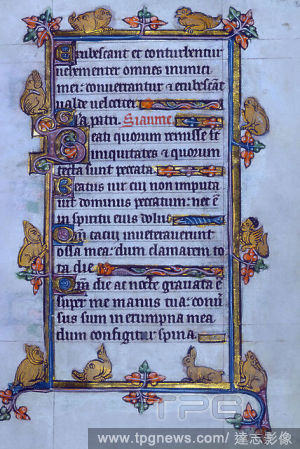 Erubescant et conturbentur
uehementer omnes inimici
mei: conuertantur et erubescāt
ualde uelociter.
Gl̄a patri.
Beati quorum remisse st̄
iniquitates et quorum
tecta sunt peccata.
Beatus uir cui non imputa
uit dominus peccatum: nec ē
in spiritu eius dolus.
Qm̄ tacui inueterauerunt
ossa mea: dum clamarem to
ta die.
Qm̄ die ac nocte grauata ē
super me manus tua: conuer
sus sum in erumpna mea
dum configitur spina.
TPG
www.tpgnews.com/ 達志影像